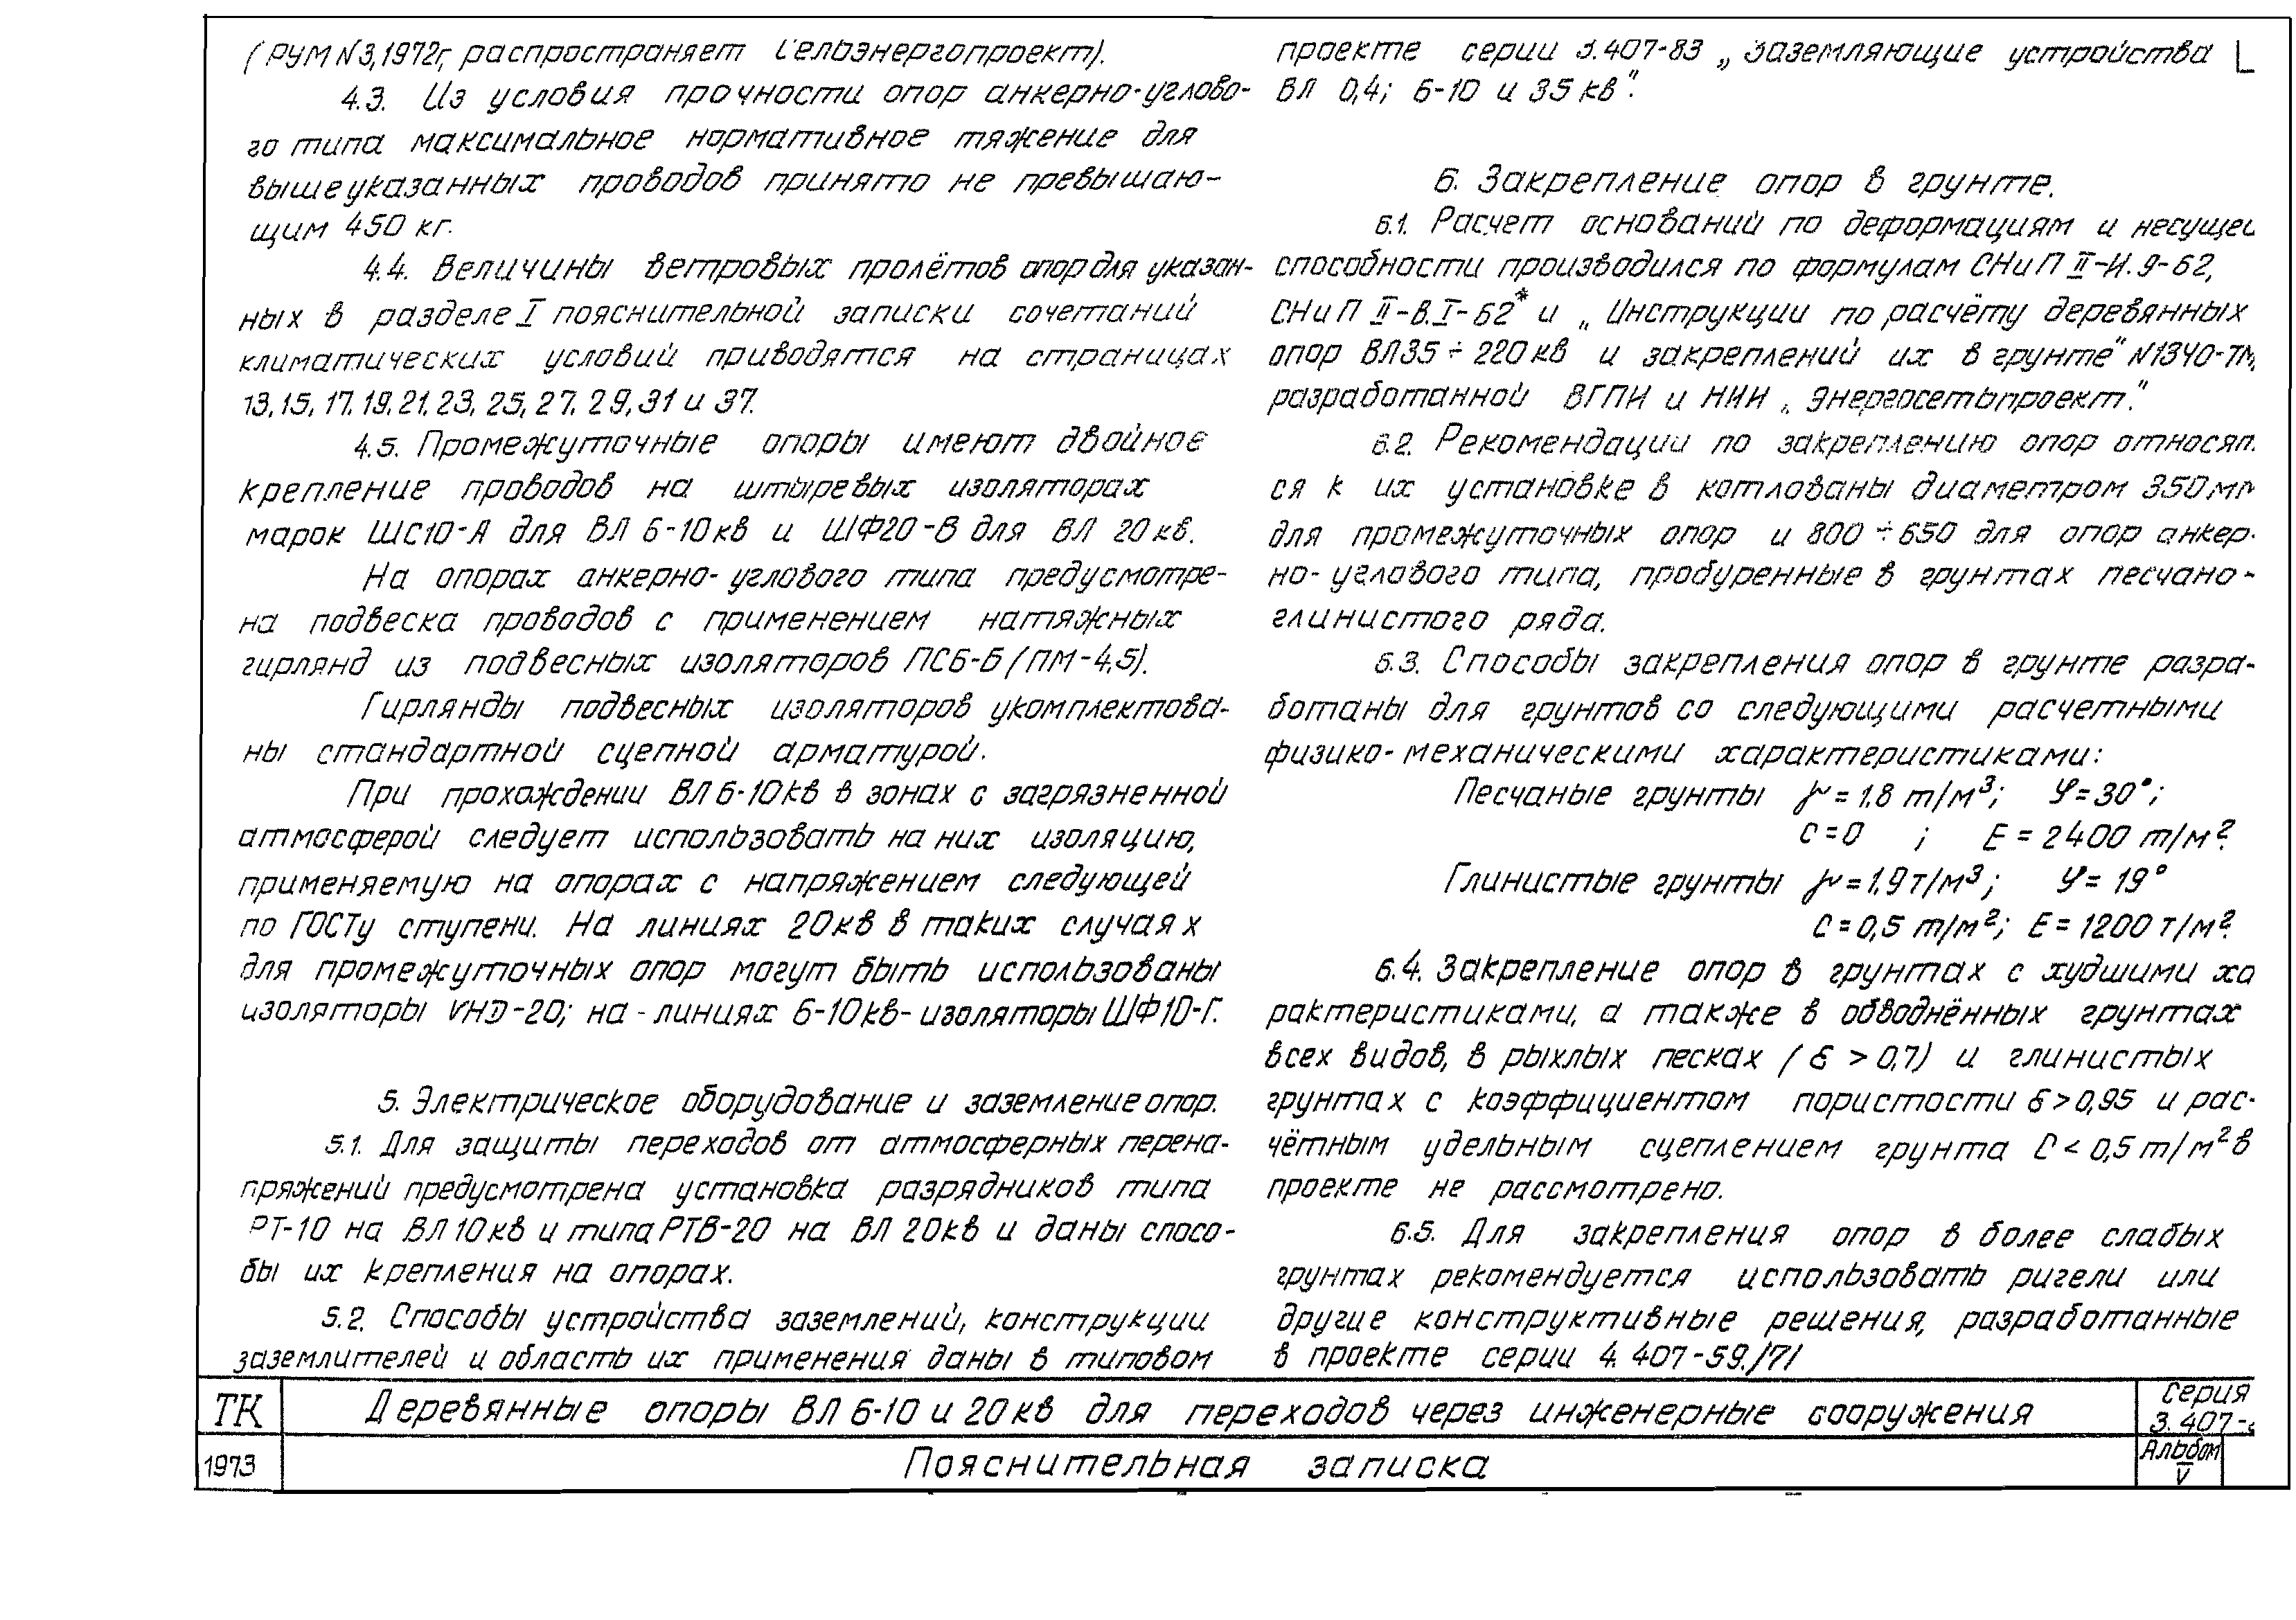 (РУМ №3,1972г, распространяет Сельэнергопроект).
4.3. Из условия прочности опор анкерно-углово-
го типа максимальное нормативное тяжение для
вышеуказанных проводов принято не превышаю-
щим 450 кг.
4.4. Величины ветровых пролётов опор для указан-
ных в разделе I пояснительной записки сочетаний
климатических условий приводятся на страницах
13,15,17,19,21,23,25,27,29,31 и 37.
4.5. Промежуточные опоры имеют двойное
крепление проводов на штыревых изоляторах
марок ШС10-А для ВЛ 6-10кв и ШФ20-В для ВЛ 20кв.
На опорах анкерно-углового типа предусмотре-
на подвеска проводов с применением натяжных
гирлянд из подвесных изоляторов ПС6-Б (ПМ-4,5).
Гирлянды подвесных изоляторов укомплектова-
ны стандартной сцепной арматурой.
При прохождении ВЛ 6-10кв в зонах с загрязненной
атмосферой следует использовать на них изоляцию,
применяемую на опорах с напряжением следующей
по ГОСТу ступени. На линиях 20кв в таких случаях
для промежуточных опор могут быть использованы
изоляторы VHD-20; на - линиях 6-10кв- изоляторы ШФ10-Г.
5. Электрическое оборудование и заземление опор.
5.1. Для защиты переходов от атмосферных перена-
пряжений предусмотрена установка разрядников типа
РТ-10 на ВЛ 10кв и типа РТВ-20 на ВЛ 20кв и даны спосо-
бы их крепления на опорах.
5.2. Способы устройства заземлений, конструкции
заземлителей и область их применения даны в типовом
проекте серии 3.407-83 „Заземляющие устройства
ВЛ 0,4; 6-10 и 35 кв".
6. Закрепление опор в грунте.
6.1. Расчет оснований по деформациям и несущей
способности производился по формулам СНиП II-И.9-62,
СНиП II-В.I-62* и „Инструкции по расчёту деревянных
опор ВЛ35÷220кв и закреплений их в грунте" №1340-ТМ,
разработанной ВГПИ и НИИ „Энергосетьпроект".
6.2. Рекомендации по закреплению опор относят
ся к их установке в котлованы диаметром 350мм
для промежуточных опор и 800÷650 для опор анкер-
но-углового типа, пробуренные в грунтах песчано-
глинистого ряда.
6.3. Способы закрепления опор в грунте разра-
ботаны для грунтов со следующими расчетными
физико-механическими характеристиками:
Песчаные грунты γ=1,8 т/м³; φ=30°;
С=0 ; Е=2400 т/м².
Глинистые грунты γ=1,9т/м³; φ=19°
С=0,5 т/м²; Е=1200 т/м².
6.4. Закрепление опор в грунтах с худшими ха
рактеристиками, а также в обводнённых грунтах
всех видов, в рыхлых песках (ε > 0,7) и глинистых
грунтах с коэффициентом пористости ε>0,95 и рас-
чётным удельным сцеплением грунта С < 0,5 т/м² в
проекте не рассмотрено.
6.5. Для закрепления опор в более слабых
грунтах рекомендуется использовать ригели или
другие конструктивные решения, разработанные
в проекте серии 4.407-59/71
ТК
Деревянные опоры ВЛ 6-10 и 20кв для переходов через инженерные сооружения
Серия
3.407-
1973
Пояснительная записка
Альбом
V